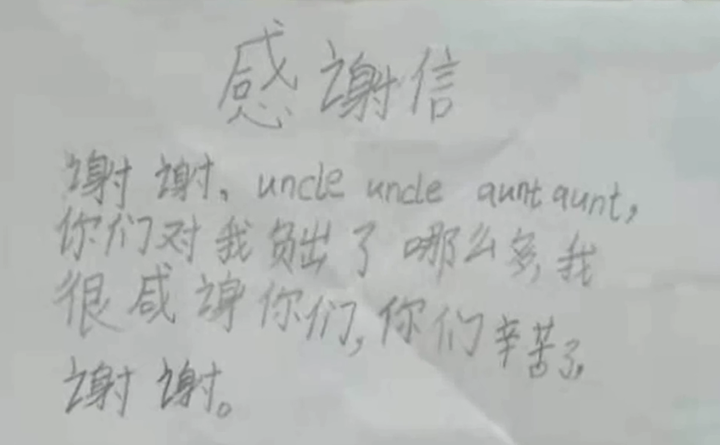 感谢信
谢谢、uncle uncle aunt aunt,
你们对我负出了哪么多,我
很感谢你们,你们辛苦了,
谢谢。